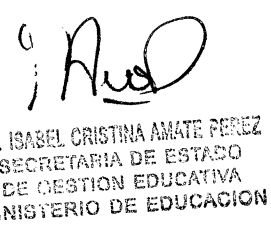 . ISABEL CRISTINA AMATE PEREZ
SECRETARIA DE ESTADO
DE GESTION EDUCATIVA
NISTERIO DE EDUCACION